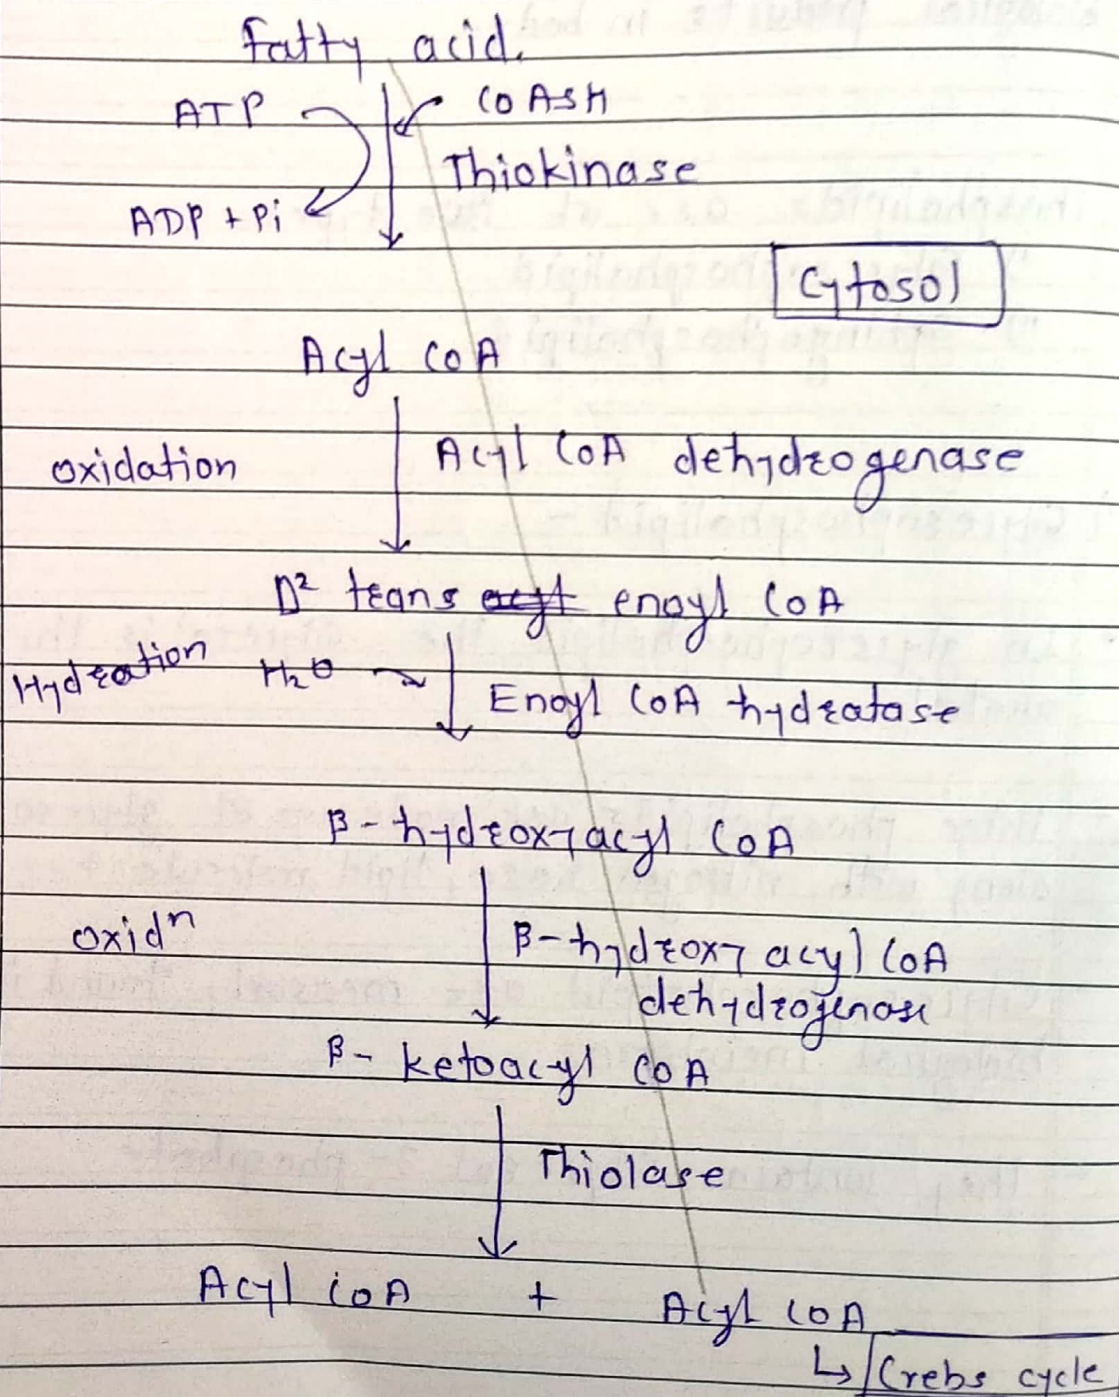 Fatty acid.
ATP CoASH
Thiokinase
ADP + Pi
Cytosol
Acyl CoA
oxidation Acyl CoA dehydrogenase
Δ² trans enoyl CoA
Hydration H₂O
Enoyl CoA hydratase
β-hydroxyacyl CoA
oxidⁿ β-hydroxy acyl CoA
dehydrogenase
β-ketoacyl CoA
Thiolase
Acyl CoA + Acyl CoA
↳ Crebs cycle